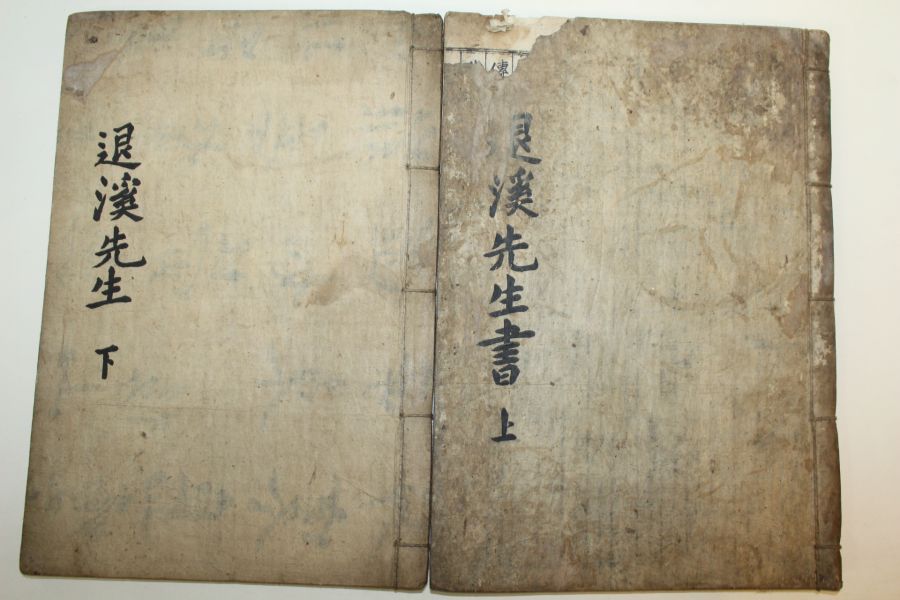 傳
退溪先生書 上
退溪先生 下